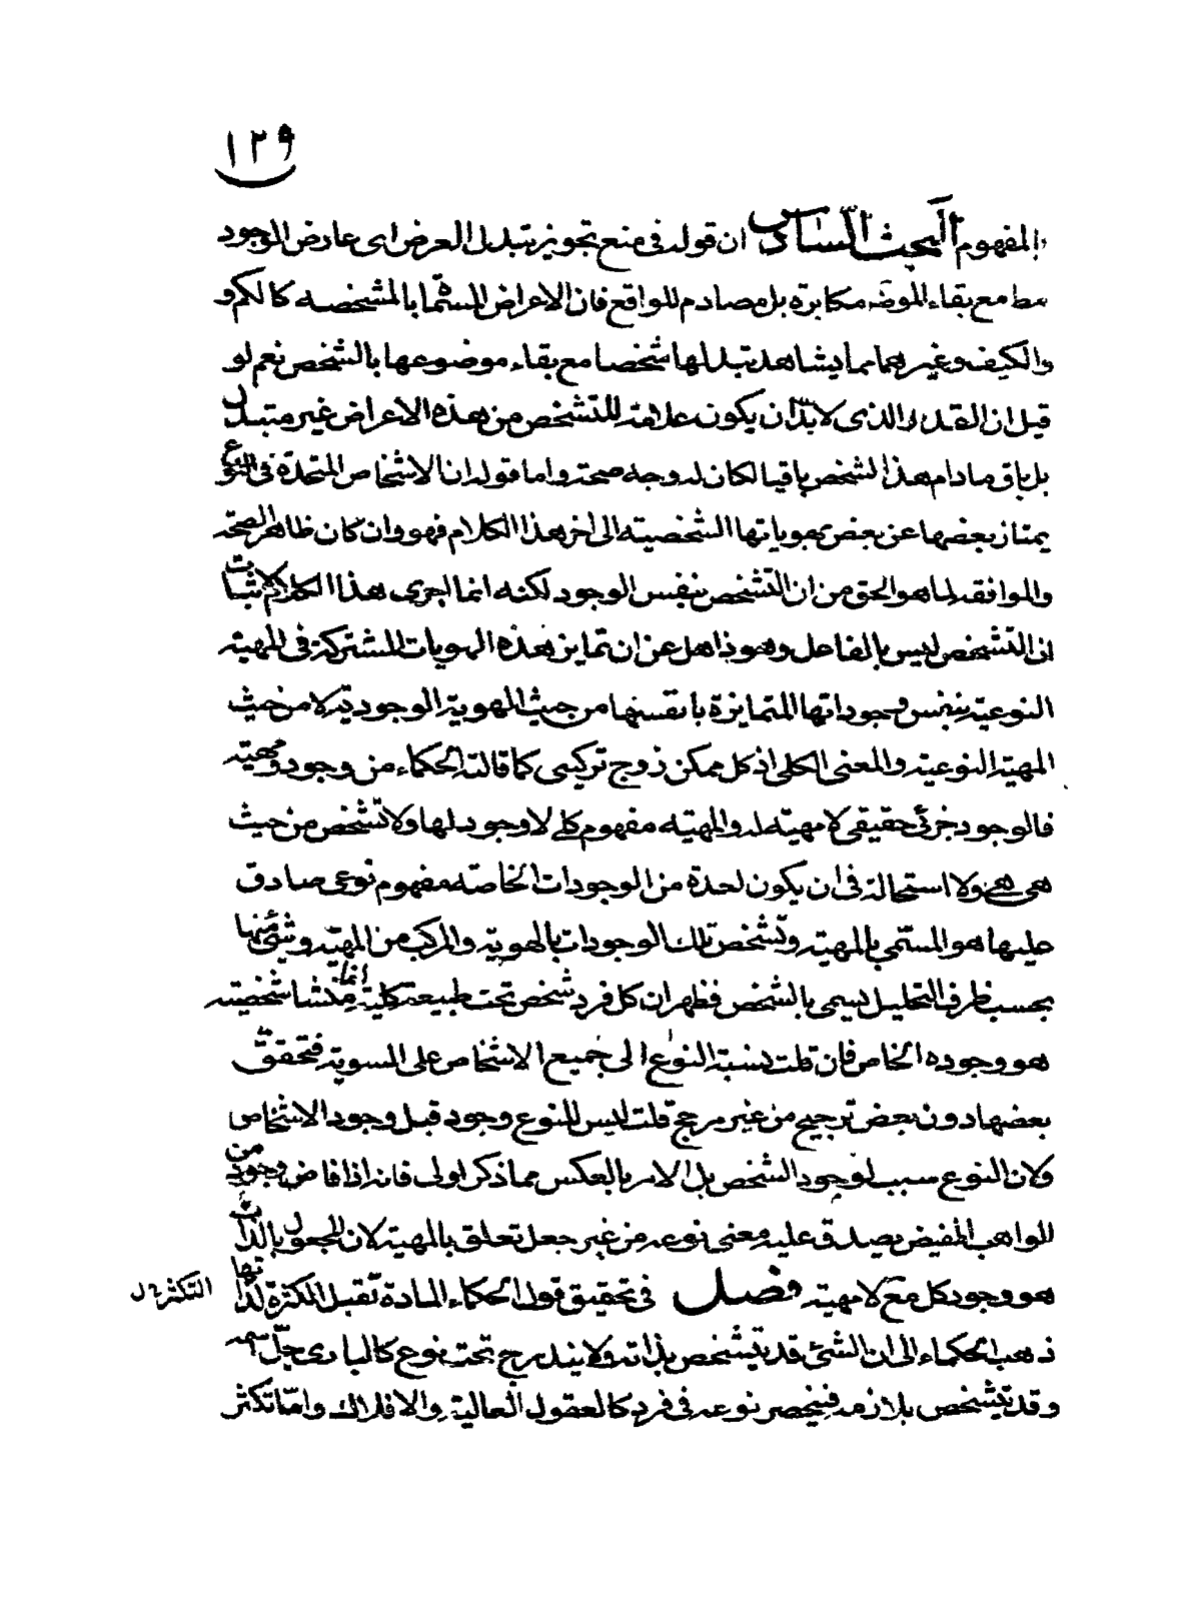 ١٢٩
المفهوم البحث السادس ان قوله فى منع تجويز تبدل العرض اى عارض الوجود
مط مع بقاء الموضوع مكابرة بل مصادم للواقع فان الاعراض المسماة بالمشخصه كالكم و
والكيف وغيرهما مما يشاهد تبدلها شخصا مع بقاء موضوعها بالشخص نعم لو
قيل ان القدر الذى لا بدّ ان يكون علامة للتشخص من هذه الاعراض غير متبدل
بل باق مادام هذا الشخص باقيا لكان له وجه صحة واما قوله ان الاشخاص المتحدة فى النوع
يمتاز بعضها عن بعض بهوياتها الشخصيته الى اخر هذا الكلام فهو وان كان ظاهر الصحة
والموافقة لما هو الحق من ان التشخص بنفس الوجود لكنه انما اجرى هذا الكلام لاثبات
ان التشخص ليس بالفاعل وهو ذاهل عن ان تمايز هذه الهويات المشتركة فى المهية
النوعية بنفس وجوداتها المتمايزة بانفسها من حيث الهوية الوجودية لا من حيث
المهية النوعية والمعنى الكلى اذ كل ممكن زوج تركيبى كما قالته الحكماء من وجود ومهية
فالوجود جزئى حقيقى لا مهية له والمهيته مفهوم كلى لا وجود لها ولا تشخص من حيث
هى هى ولا استحالة فى ان يكون لحدة من الوجودات الخاصته مفهوم نوعى صادق
عليها هو المسمى بالمهية وتشخص تلك الوجودات بالهوية والمركب من المهية وشئ منها
بحسب ظرف التحليل يسمى بالشخص فظهر ان كل فرد شخص تحت طبيعة كلية انما منشا شخصيته
هو وجوده الخاص فان قلت نسبة النوع الى جميع الاشخاص على السوية فتحقق
بعضها دون بعض ترجيح من غير مرجح قلت ليس للنوع وجود قبل وجود الاشخاص
ولان النوع سبب لوجود الشخص بل الامر بالعكس مما ذكر اولى فانه اذا فاض وجود من
الواهب المفيض يصدق عليه معنى نوعه من غير جعل تعلق بالمهية لان المجعول بالذات
هو وجود كل مع لا مهيته فصل فى تحقيق قول الحكماء المادة تقبل الكثرة لذاتها
التكثر ل
ذهب الحكماء الى ان الشئ قد يتشخص بذاته ولا يندرج تحت نوع كالبارى جلّ اسمه
وقد يتشخص بلازمه فينحصر نوعه فى فرد كالعقول العالية والافلاك وامّا تكثر